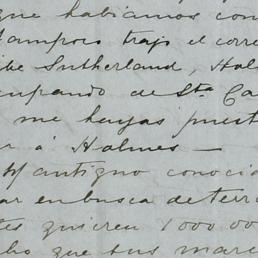 que habiamos con
tampoco trajo el corre
be Sutherland, Hol
cupando de Sta Ca
me hayas puest
r á Holmes —
antiguo conocid
ar en busca de terr
es quieren 1000.00
ho que sus marc